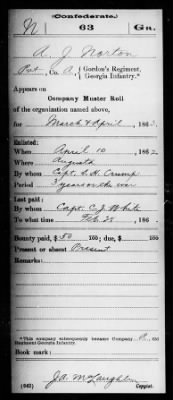 (Confederate.)
N 63 Ga.
A. J. Norton
Pvt, Co. A, Gordon's Regiment,
Georgia Infantry.*
Appears on
Company Muster Roll
of the organization named above,
for March & April, 1863.
Enlisted:
When April 10, 1862
Where Augusta
By whom Capt. S. H. Crump
Period 3 years or the war
Last paid:
By whom Capt. C. J. White
To what time Feb. 28, 186
Bounty paid, $50 100; due, $ 100
Present or absent Present
Remarks:
*This company subsequently became Company 63
Regiment Georgia Infantry.
Book mark:
(642) J. A. McLaughlin
Copyist.